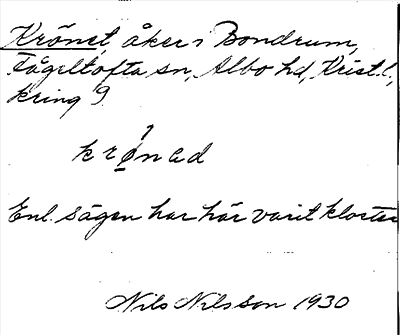 Krönet, åker i Bondrum,
Fågeltofta sn, Albo hd, Krist. l,
kring 9
krønad
Enl. sägen har här varit kloster
Nils Nilsson 1930